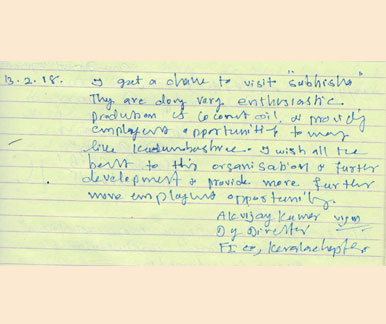 13.2.18. I got a chance to visit "Subhiksha"
They are doing very enthusiastic
production of coconut oil, & provide
employment opportunities to many
like Kudumbashree. I wish all the
best to this organisation & further
development & provide more further
more employment opportunity.
A K Vijay Kumar
Dy Director
Kerala chapter